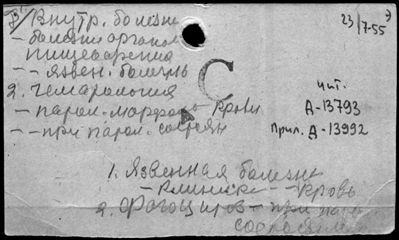 Внутр. болезни
23/7-55
- болезни органов
пищеварения
- - язвен. болезнь
С
2. гематология
- парол. морфол. крови
- - при парол. состоян
чит.
Д-13793
Прил. Д-13992
1. Язвенная болезнь
- клиника - кровь
2. Фагоцитоз - при